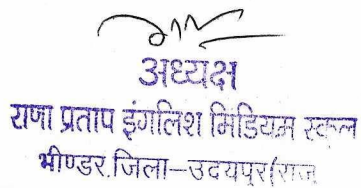 अध्यक्ष
राणा प्रताप इंगलिश मिडियम स्कूल
भीण्डर.जिला—उदयपुर(राज.